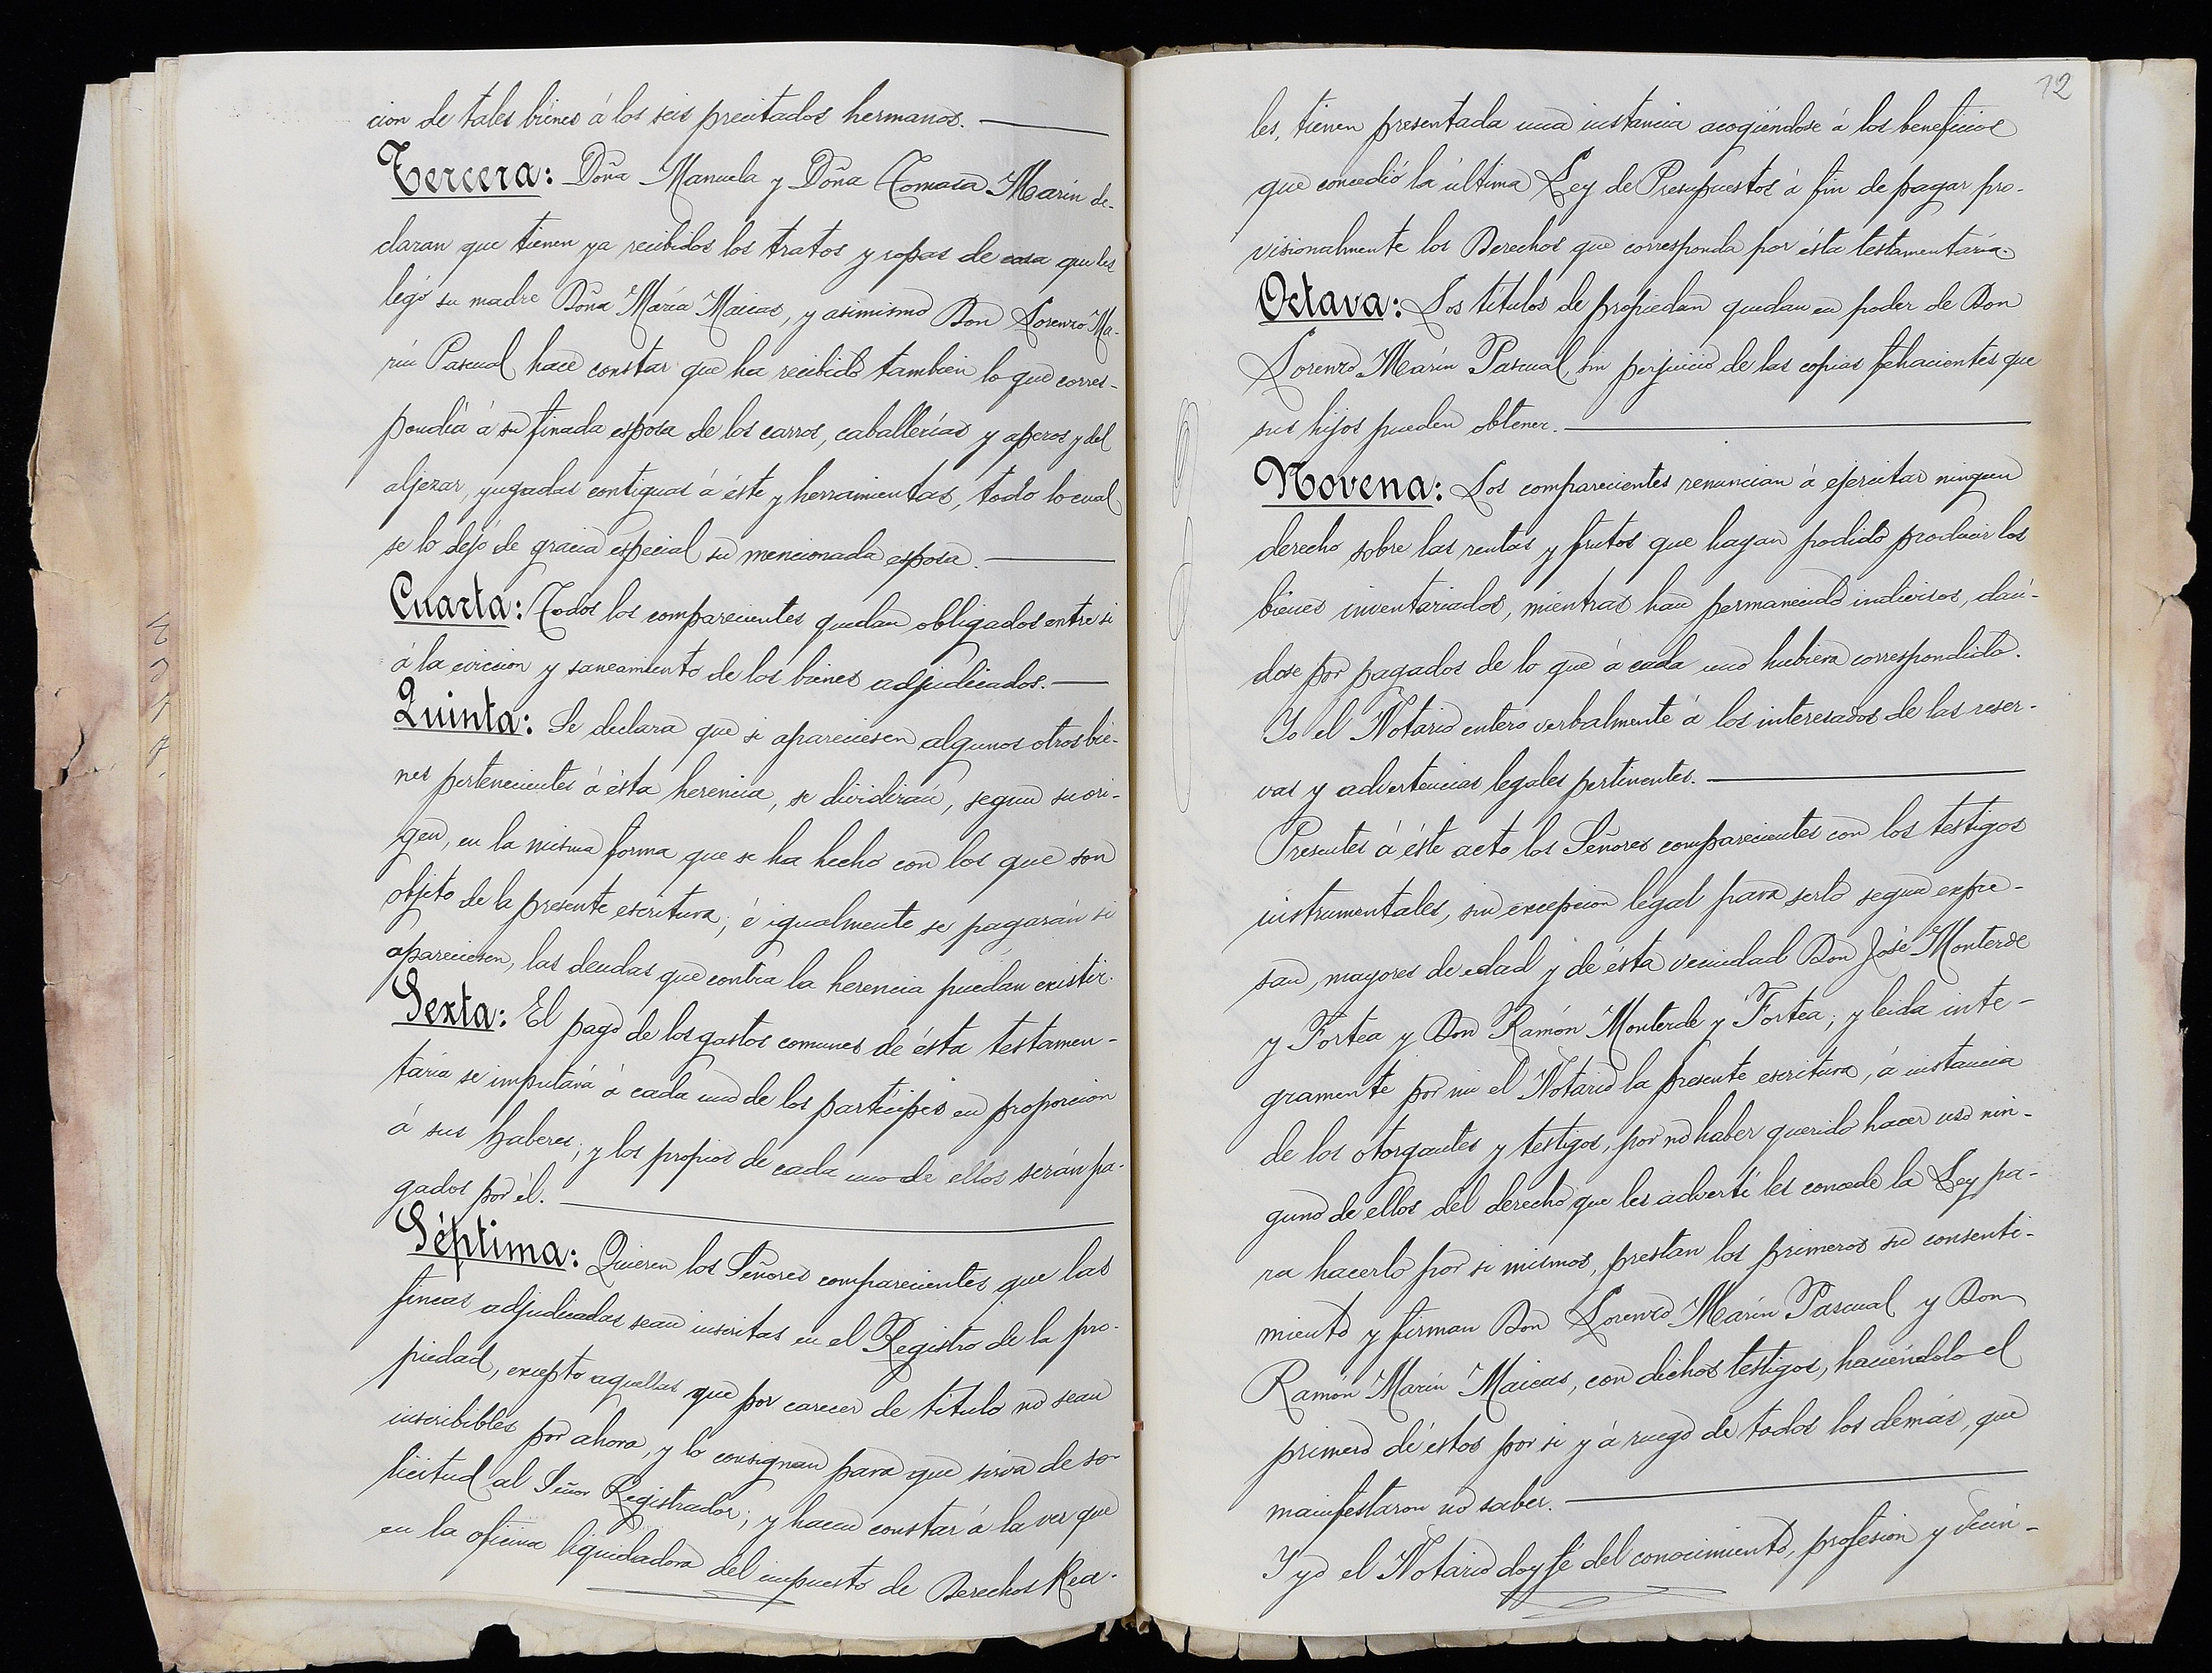 cion de tales bienes á los seis precitados hermanos.
Tercera: Doña Manuela y Doña Tomasa Marín de-
claran que tienen ya recibidos los tratos y ropas de casa que les
legó su madre Doña María Maicas, y asimismo Don Lorenzo Ma-
rín Pascual hace constar que ha recibido tambien lo que corres-
pondía á su finada esposa de los carros, caballerías y aperos y del
aljezar, yugadas contiguas á éste y herramientas, todo lo cual
se lo dejó de gracia especial su mencionada esposa.
Cuarta: Todos los comparecientes quedan obligados entre si
á la eviccion y saneamiento de los bienes adjudicados.
Quinta: Se declara que si apareciesen algunos otros bie-
nes pertenecientes á ésta herencia, se dividirán, segun su ori-
gen, en la misma forma que se ha hecho con los que son
objeto de la presente escritura; é igualmente se pagarán si
apareciesen, las deudas que contra la herencia puedan existir.
Sexta: El pago de los gastos comunes de ésta testamen-
taría se imputará á cada uno de los partícipes en proporcion
á sus haberes; y los propios de cada uno de ellos serán pa-
gados por él.
Séptima: Quieren los Señores comparecientes que las
fincas adjudicadas sean inscritas en el Registro de la pro-
piedad, excepto aquellas que por carecer de título no sean
inscribibles por ahora, y lo consignan para que sirva de so-
licitud al Señor Registrador; y hacen constar á la vez que
en la oficina liquidadora del impuesto de Derechos Rea-
12
les, tienen presentada una instancia acogiéndose á los beneficios
que concedió la última Ley de Presupuestos á fin de pagar pro-
visionalmente los Derechos que corresponda por ésta testamentaría.
Octava: Los títulos de propiedan quedan en poder de Don
Lorenzo Marín Pascual, sin perjuicio de las copias fehacientes que
sus hijos pueden obtener.
Novena: Los comparecientes renuncian á ejercitar ningun
derecho sobre las rentas y frutos que hayan podido producir los
bienes inventariados, mientras han permanecido indivisos, dán-
dose por pagados de lo que á cada uno hubiera correspondido.
Yo el Notario entero verbalmente á los interesados de las reser-
vas y advertencias legales pertinentes.
Presentes á éste acto los Señores comparecientes con los testigos
instrumentales, sin excepcion legal para serlo segun expre-
san, mayores de edad y de ésta vecindad Don José Monterde
y Fortea y Don Ramón Monterde y Fortea; y leida inte-
gramente por mi el Notario la presente escritura, á instancia
de los otorgantes y testigos, por no haber querido hacer uso nin-
guno de ellos del derecho que les advertí les concede la Ley pa-
ra hacerlo por si mismos, prestan los primeros su consenti-
miento y firman Don Lorenzo Marín Pascual y Don
Ramón Marín Maicas, con dichos testigos, haciéndolo el
primero de éstos por si y á ruego de todos los demás, que
manifestaron no saber.
Y yo el Notario doy fé del conocimiento, profesion y vecin-